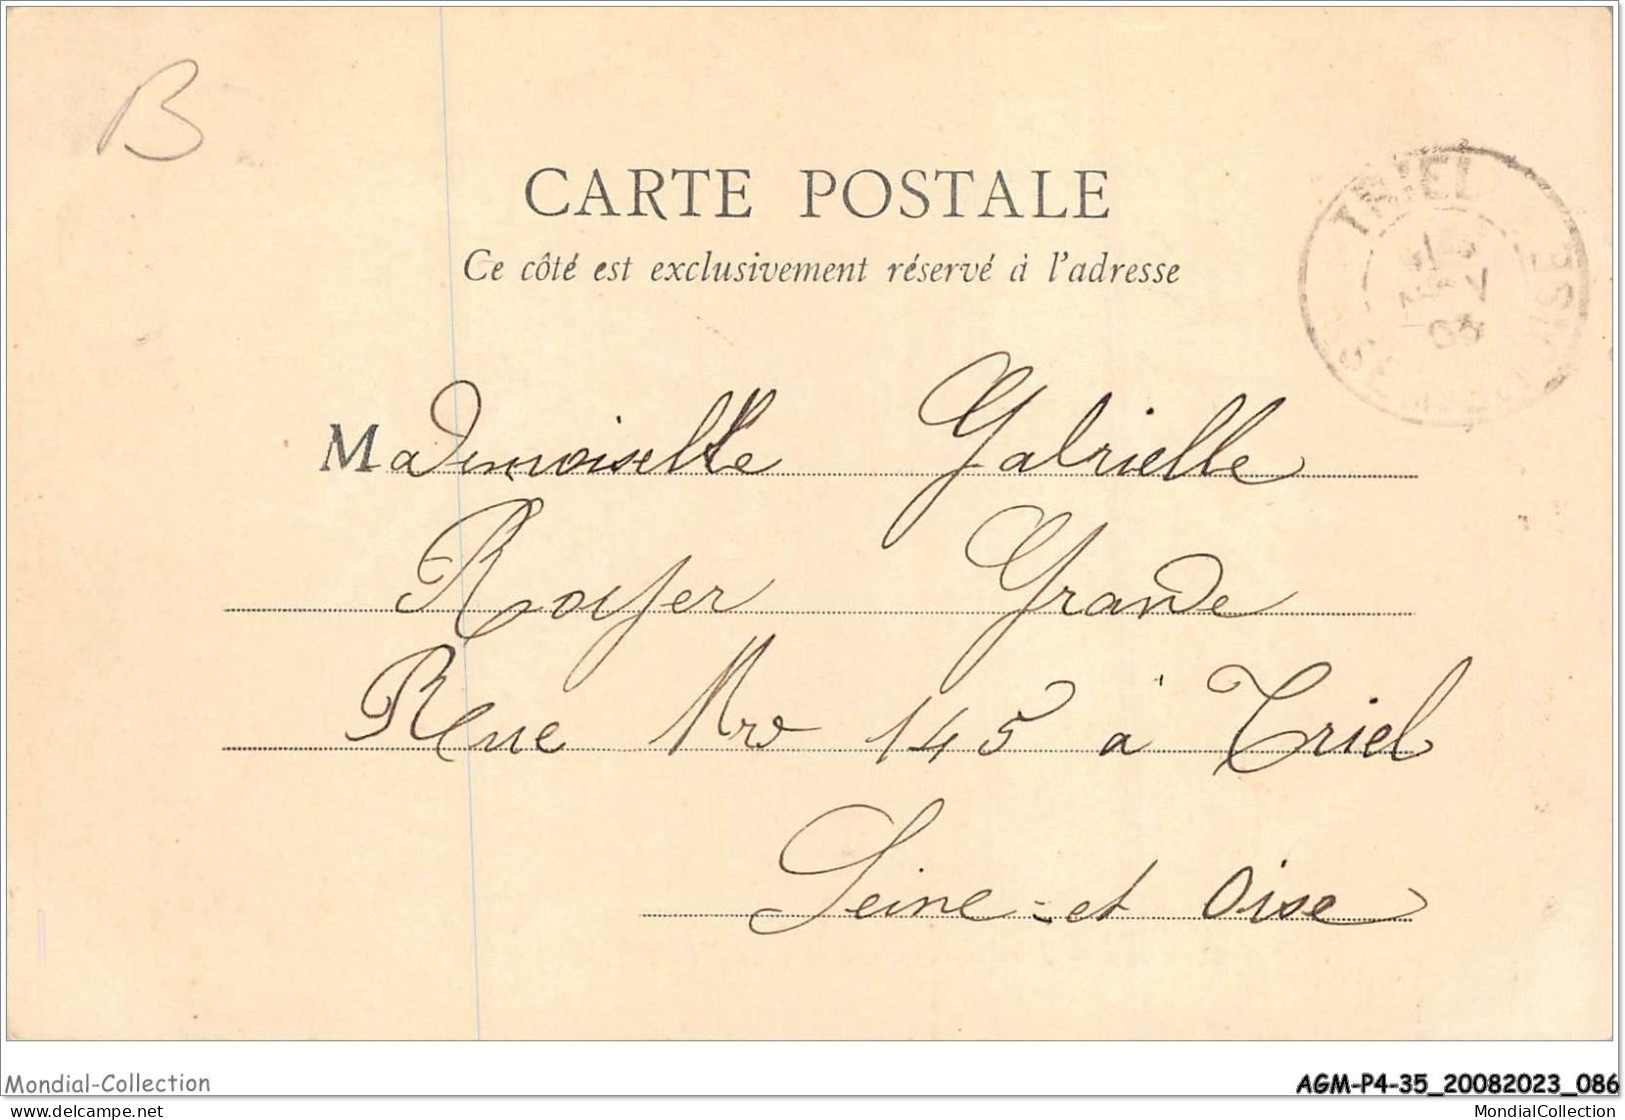 B
CARTE POSTALE
Ce côté est exclusivement réservé à l'adresse
TRIEL
03
OISE
Mademoiselle Gabrielle
Royer Grande
Rue Nro 145 à Triel
Seine-et Oise
Mondial-Collection
AGM-P4-35_20082023_086
www.delcampe.net
MondialCollection